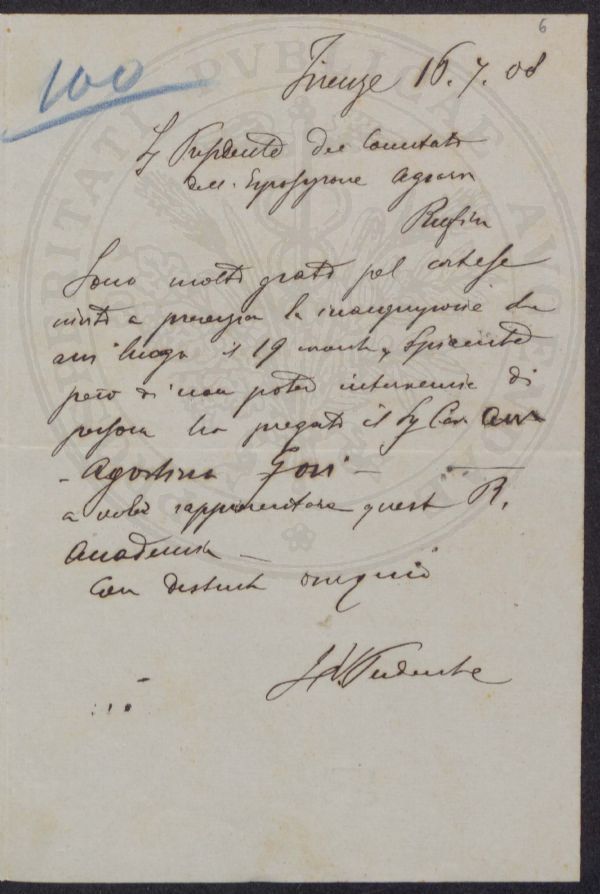 6
100
Firenze 16.7.08
Sg Presidente del Comitato
dell'Esposizione Agraria
Rufina
Sono molto grato pel cortese
invito a presenziare la inaugurazione che
avrà luogo il 19 corrente, spiacente
però di non poter intervenire di
persona ho pregato il Sg Cav. Avv
- Agostino Gori -
a voler rappresentare questa R.
Accademia -
Con distinto ossequio
Il V. Presidente
PROSPERITATI PUBLICAE AUGENDAE